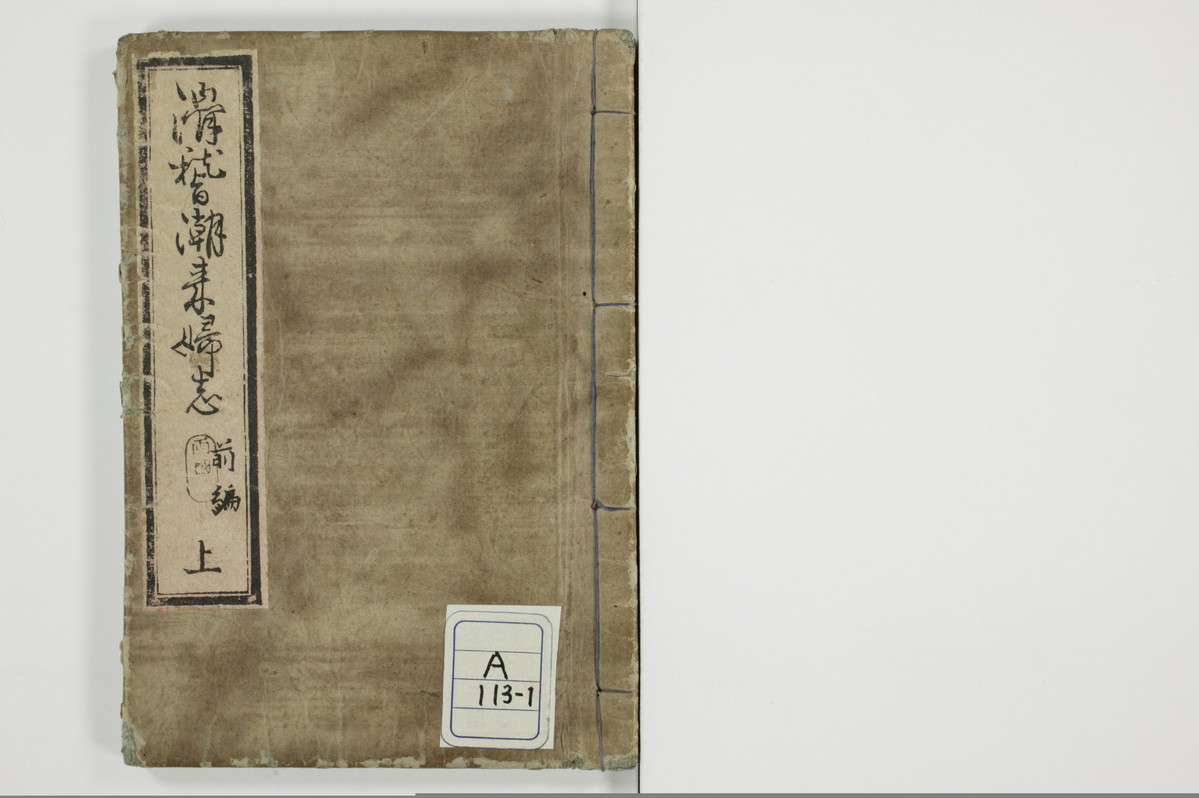 滑稽潮来婦志
前編
上
A
113-1